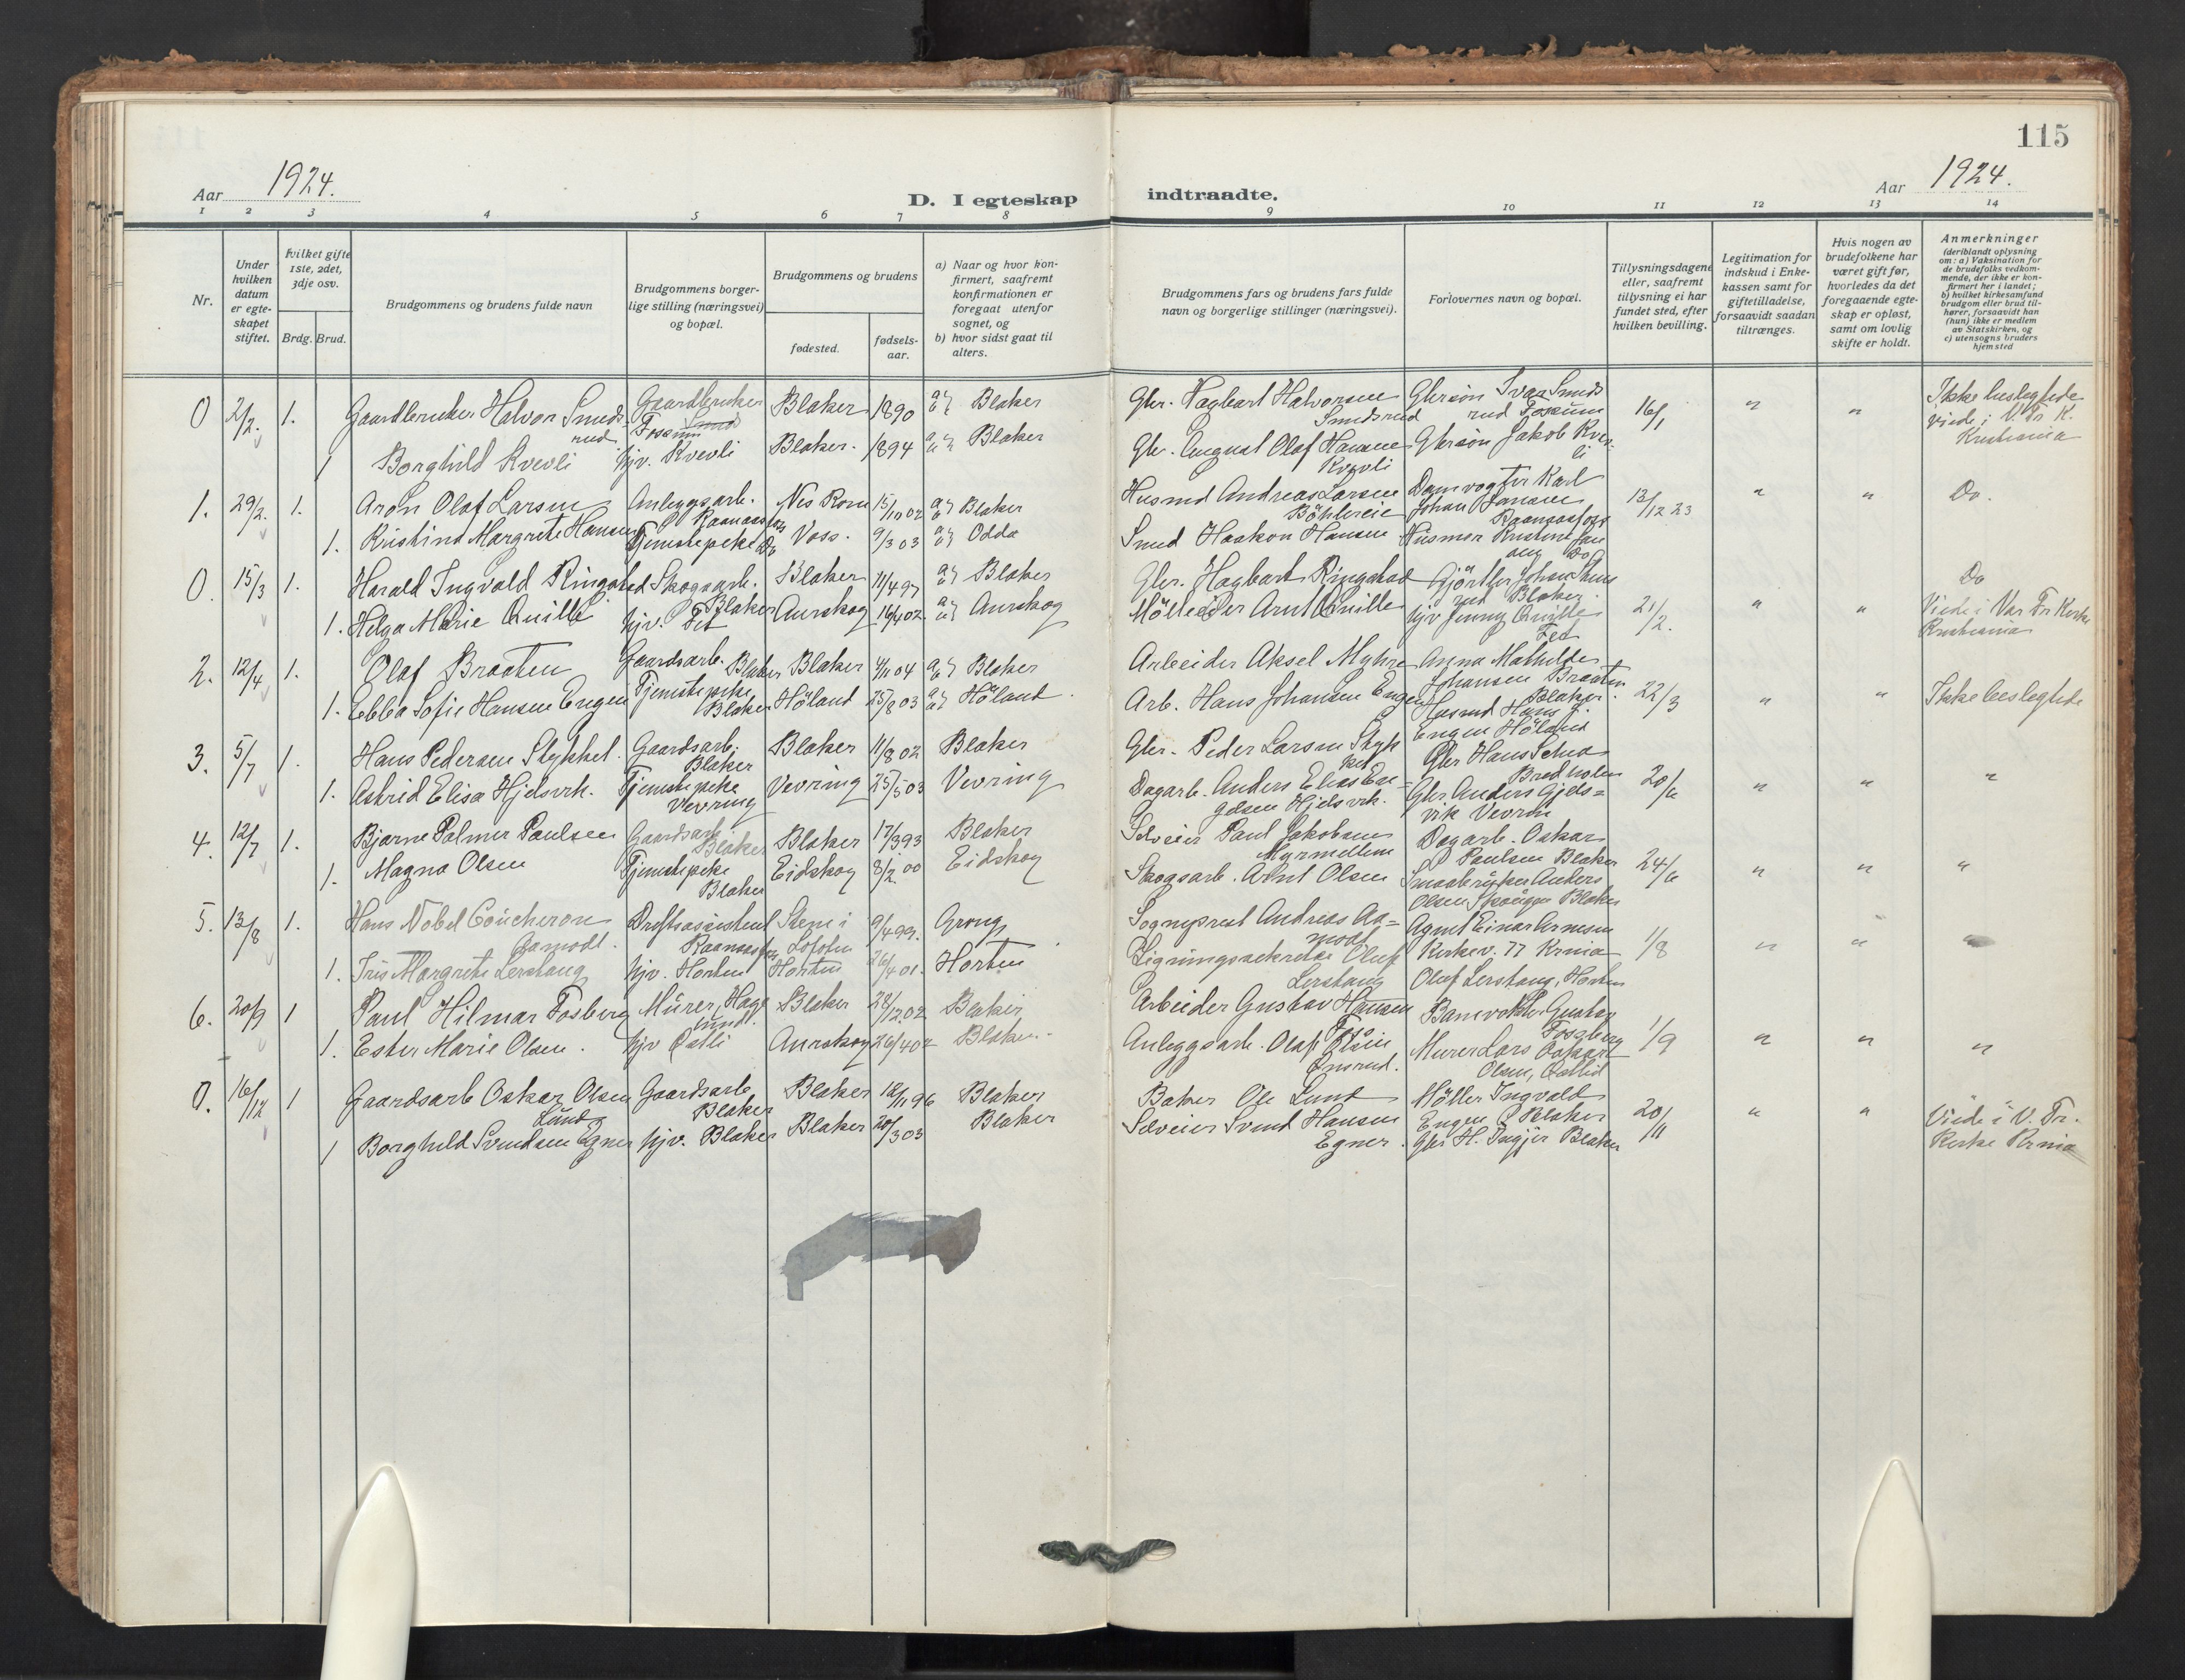 115
Aar 1924.
D. I egteskap indtraadte.
Aar 1924.
1 2 3 4 5 6 7 8 9 10 11 12 13 14
Nr.
Under hvilken datum er egteskapet stiftet.
Hvilket gifte 1ste, 2det, 3dje osv.
Brdg. Brud.
Brudgommens og brudens fulde navn
Brudgommens borgerlige stilling (næringsvei) og bopæl.
Brudgommens og brudens
fødested.
fødselsaar.
a) Naar og hvor konfirmert, saafremt konfirmationen er foregaat utenfor sognet, og
b) hvor sidst gaat til alters.
Brudgommens fars og brudens fars fulde navn og borgerlige stillinger (næringsvei).
Forlovernes navn og bopæl.
Tillysningsdagene eller, saafremt tillysning ei har fundet sted, efter hvilken bevilling.
Legitimation for indskud i Enkekassen samt for giftetilladelse, forsaavidt saadan tiltrænges.
Hvis nogen av brudefolkene har været gift før, hvorledes da det foregaaende egteskap er opløst, samt om lovlig skifte er holdt.
Anmerkninger
(deriblandt oplysning om: a) Vaksination for de brudefolks vedkommende, der ikke er konfirmert her i landet;
b) hvilket kirkesamfund brudgom eller brud tilhører, forsaavidt han (hun) ikke er medlem av Statskirken, og
c) utensogns bruders hjemsted
0 2/2. 1. Gaardbruker Halvor Smedsrud Gaardbruker Fossum Blaker 1890 a) b) Blaker Gbr. Hagbart Halvorsen Smedsrud Gbrsøn Ivar Smedsrud Fossum 16/1 " " Ikke beslegtede viede i V. Fr. K. Kristiania
1 Borghild Kvevli hjv. Kvevli Blaker. 1894 a) b) Blaker Gbr. August Olaf Hansen Kvevli Gbrsøn Jakob Kvevli
1. 29/2. 1. Aron Olaf Larsen Anleggsarb. Raanaasfoss Nes Rom 15/10 02 a) b) Blaker Husmd Andreas Larsen Böhlereie Damvogter Karl Johan Jansen Raanaasfoss 13/12 23 " " Do.
1. Kristina Margrete Hansen Tjenestepike Do Voss. 9/3 03 a) b) Odda Smed Haakon Hansen Husmor Kristine Do
0. 15/3 1. Harald Ingvald Ringstad Skogsarb. Blaker Blaker 11/4 97 a) b) Blaker Gbr. Hagbart Ringstad Gjörtler Johan Blaker. 21/2. " " Do Viede i Vor Fr Kirke Kristiania
1. Helga Marie Quille hjv. Fet Aurskog 16/4 02. a) b) Aurskog Mölleeier Arnt Quille hjv Jenny Quille Fet
2. 12/4 1. Olaf Braaten Gaardsarb. Blaker Blaker 4/11 04 a) b) Blaker Arbeider Aksel Myhre Anna Mathilde Johansen Braaten Blaker. 22/3 " " Ikke beslegtede
1. Ebba Sofie Hansen Engen Tjenestepike Blaker Höland 25/8 03 a) b) Höland. Arb. Hans Johansen Engen Husmd Hans J. Engen Höland
3. 5/7 1. Hans Pedersen Stykket. Gaardsarb. Blaker Blaker 11/8 02 Blaker Gbr. Peder Larsen Stykket Gbr Hans Bredholen 20/6 " " "
1. Astrid Elisa Hjelsvik. Tjenestepike Vevring Vevring 25/5 03 Vevring Dagarb. Anders Elias Hjelsvik. Gbr Anders Gjelsvik Vevrin
4. 12/7 1. Bjarne Palmer Paulsen Gaardsarb Blaker Blaker 17/3 93 Blaker Selveier Paul Jakobsen Myrmellem Dagarb. Oskar Paulsen Blaker 24/6 " " "
1. Magna Olsen Tjenestepike Blaker Eidskog 8/2 00 Eidskog Skogsarb. Arnt Olsen Smaabruker Anders Olsen Blaker
5. 13/8 1. Hans Nobel Coucheron Aamodt. Driftsassistent Raanaasfos Steni i Lofoten 9/4 99. Grong Sogneprest Andreas Aamodt Agent Einar Arnesen Kirkev. 77 Krnia 1/8 " " "
1. Iris Margrete Lerstang hjv. Horten Horten 26/4 01. Horten Ligningssekretær Oluf Lerstang Oluf Lerstang, Horten
6. 20/9 1 Paul Hilmar Fosberg Murer, Haglund. Blaker 28/12 02 Blaker Arbeider Gustav Hansen Foss Banevokter Gustav Fossberg 1/9 " " "
1. Ester Marie Olsen. hjv Östli Aurskog 26/4 02 Blaker. Anleggsarb. Olaf Olsen Onsrud. Murer Lars Oskar Olsen, Östlid
0. 16/12 1 Gaardsarb Oskar Olsen Lund Gaardsarb Blaker Blaker 12/11 96 Blaker Baker Ole Lund Möller Ingvald Engen Blaker 20/11 " " Viede i V. Fr. Kirke Krnia
1 Borghild Svendsen Egner hjv. Blaker Blaker 20/3 03 Blaker Selveier Svend Hansen Egner. Gbr H. Blaker